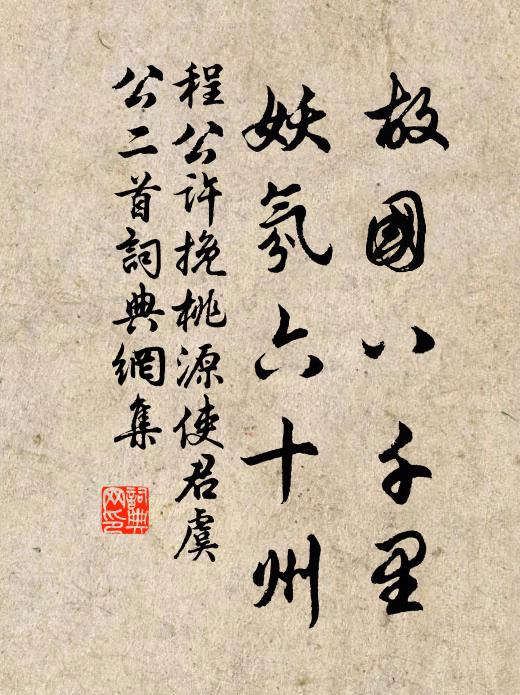 故國八千里
妖氛六十州
程公許挽桃源使君虞
公二首詞典網集
詞典
网印